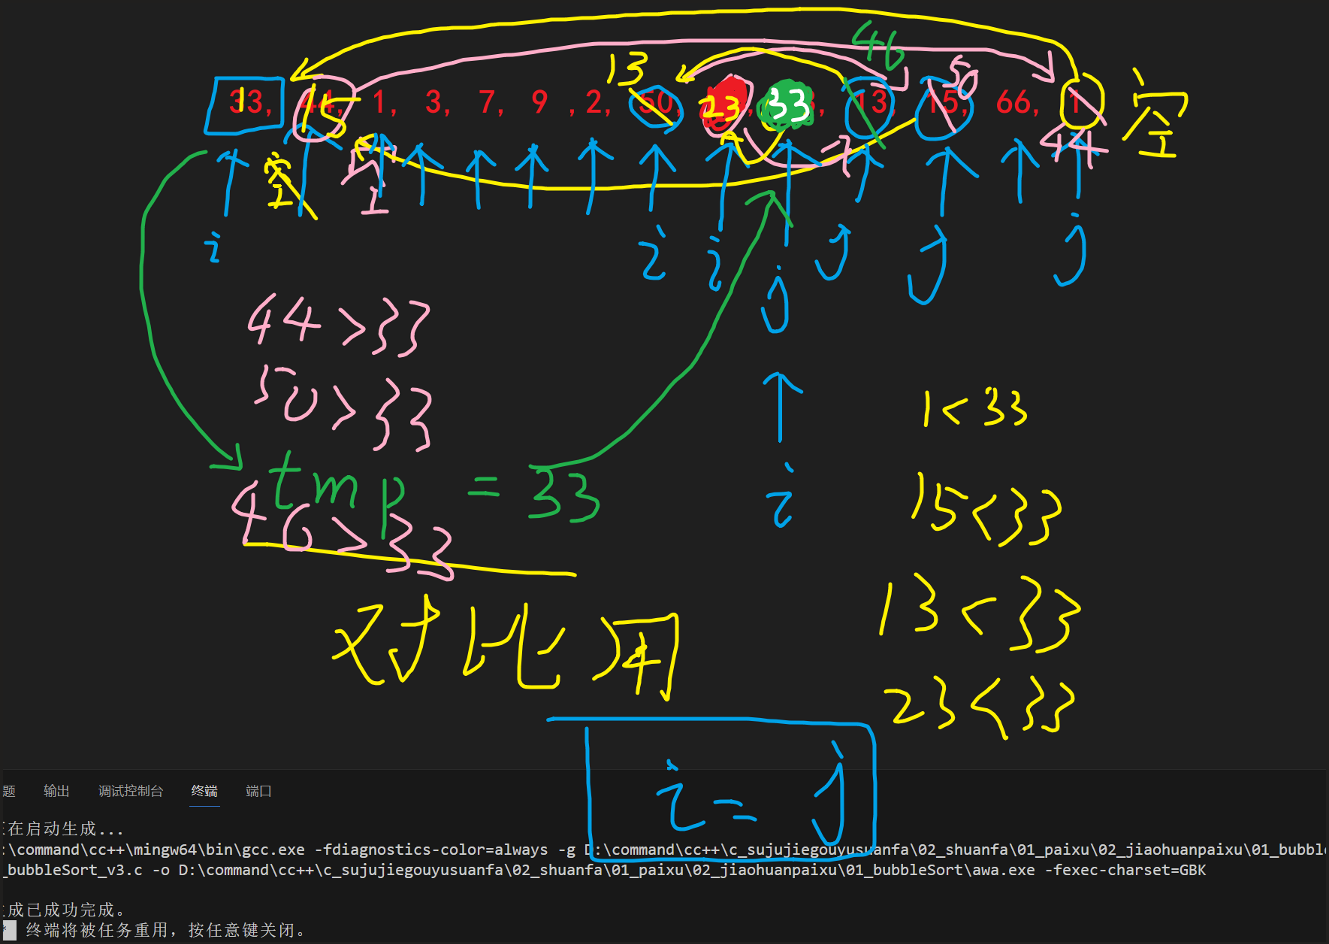 13 46 50
33, 44, 1, 3, 7, 9 ,2, 50, 13, 15, 66, 1
1 15 23 33 空
空 44
i i i j j j
j
44>33
50>33
1<33
tmp =33
i
15<33
46>33
13<33
对比用
23<33
i=j
题 输出 调试控制台 终端 端口
在启动生成...
:\command\cc++\mingw64\bin\gcc.exe -fdiagnostics-color=always -g D:\command\cc++\c_sujujiegouyusuanfa\02_shuanfa\01_paixu\02_jiaohuanpaixu\01_bubble
_bubbleSort_v3.c -o D:\command\cc++\c_sujujiegouyusuanfa\02_shuanfa\01_paixu\02_jiaohuanpaixu\01_bubbleSort\awa.exe -fexec-charset=GBK
成已成功完成。
* 终端将被任务重用，按任意键关闭。